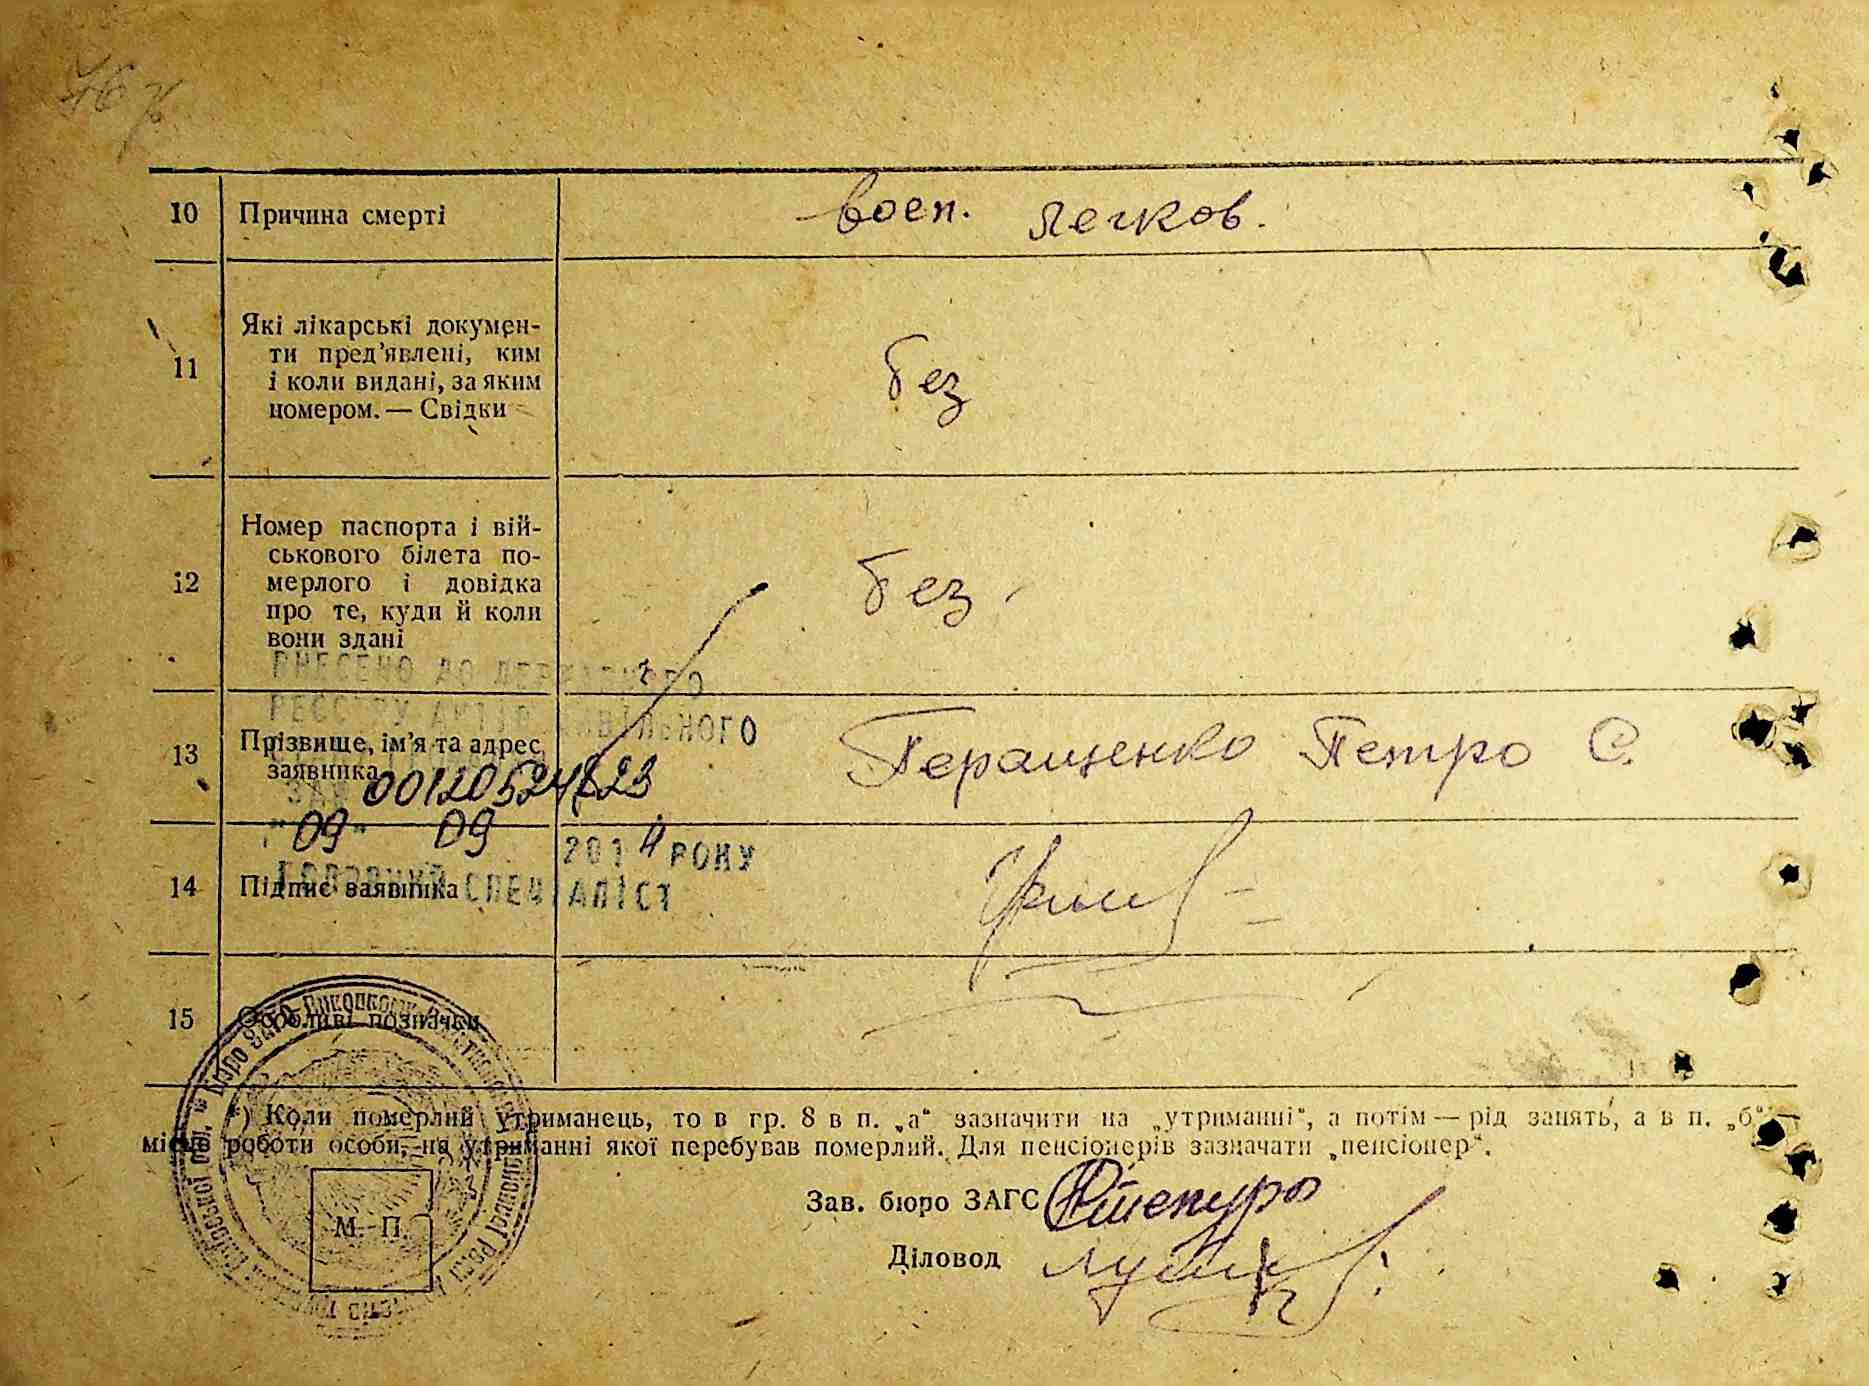 10 Причина смерті воен. легков.
Які лікарські докумен-
ти пред’явлені, ким
11 і коли видані, за яким
номером. — Свідки
без
Номер паспорта і вій-
ськового білета по-
12 мерлого і довідка
про те, куди й коли
вони здані
без
ВНЕСЕНО ДО ДЕРЖАВНОГО
РЕЄСТРУ АКТІВ ЦИВІЛЬНОГО
13 Прізвище, ім’я та адрес
заявника
Геращенко Петро С.
"09" 09 2014 РОКУ
ГОЛОВНИЙ СПЕЦІАЛІСТ
14 Підпис заявника
15 Особливі позначки
*) Коли померлий утриманець, то в гр. 8 в п. „а“ зазначити на „утриманні“, а потім — рід занять, а в п. „б“ —
місце роботи особи, на утриманні якої перебував померлий. Для пенсіонерів зазначати „пенсіонер“.
Зав. бюро ЗАГС
Діловод
М. П.